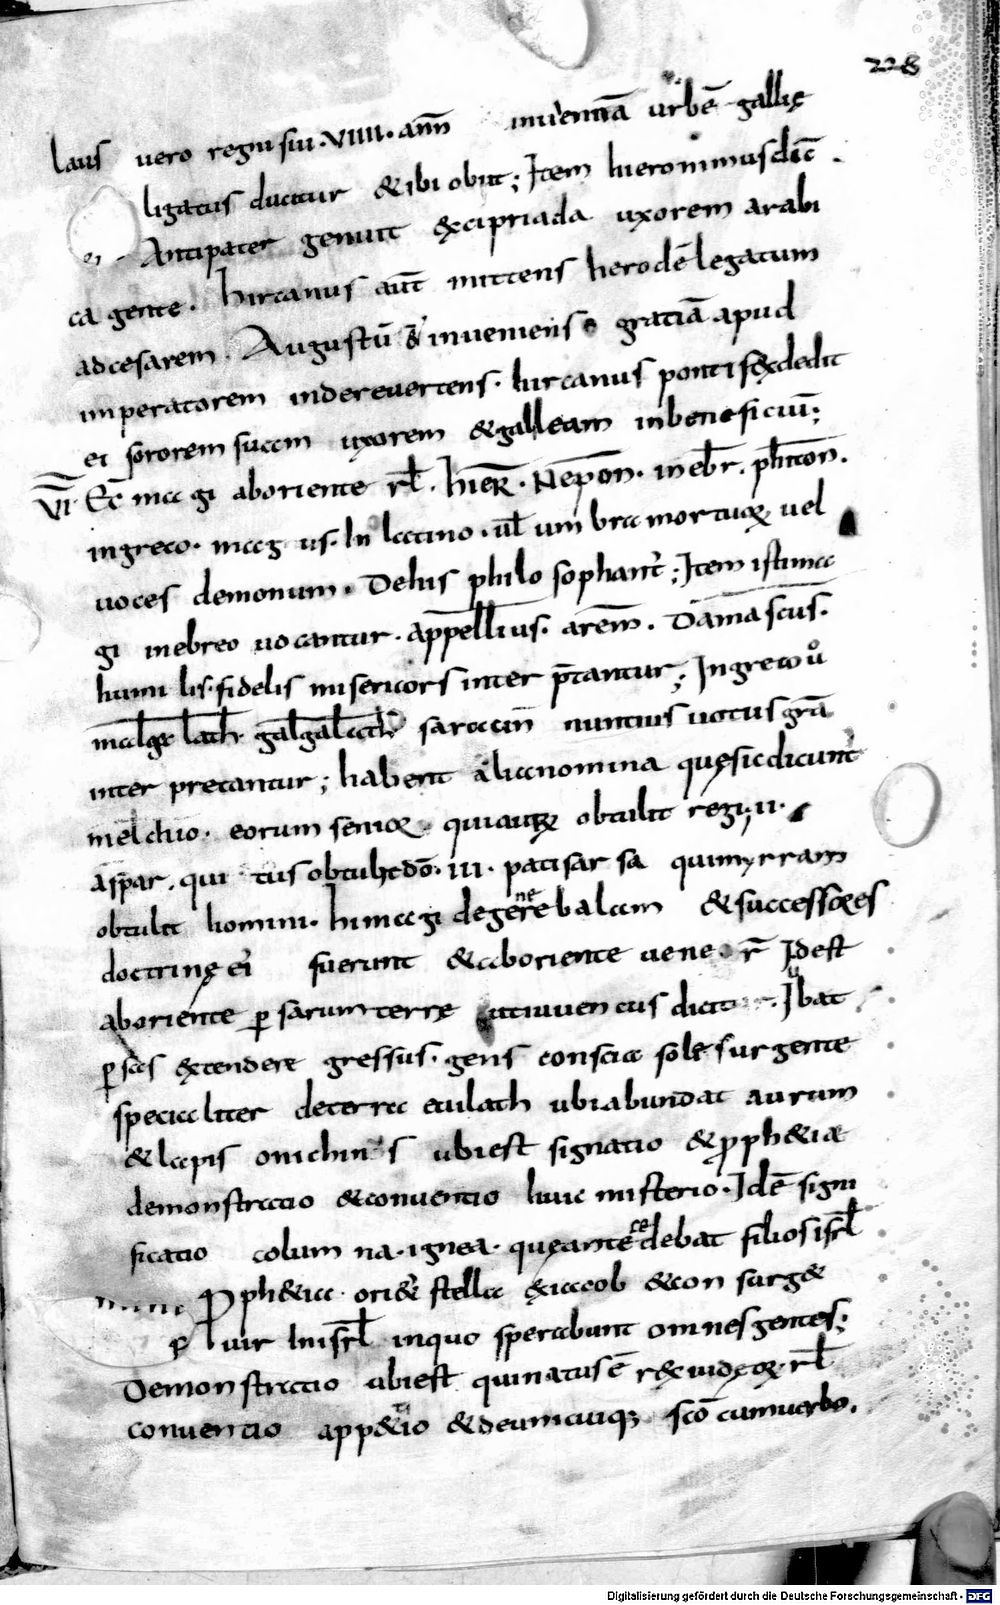 228
laus uero regni sui · VIIII · ann̄ in uiennā urbē gallię
ligatus ducitur & ibi obiit ; Item hieronimus dic̄ .
Antipater genuit ex cipriada uxorem arabi
ca gente . hircanus aūt mittens herodē legatum
ad cesarem . Augustū & inueniens gratiā apud
imperatorem inde reuertens · hircanus pontifex dedit
ei sororem suam uxorem & galleam in beneficiū ;
VI · Ec̄ magi ab oriente rl̄ . hier̄ · Nepon̄ · in ebr̄ . phiton̄ .
in greco · magus · In latino · ul̄ umbra mortuorum uel
uoces demonum . De his philosophant̄ ; Item isti ma
gi in ebreo uocantur · appellius · arem̄ . Damascus .
humilis · fidelis misericors inter p̄tantur ; In greco uº
malgalath galgalath saracin̄ nuntius uotus grā
inter pretantur ; habent alia nomina quę sic dicunt̄
melchio · eorum senior qui aurum obtulit regi · II ·
aspar . qui tus obtulit dō · III · patisarsa qui myrram
obtulit homini . hi magi de genere balaam & successores
doctrinę ei fuerunt & ab oriente uener̄ Id est
ab oriente persarum terrę ut iuuencus dicit . Ibat
persas extendere gressus · gens conscia sole surgente
specialiter de terra euilath ubi abundat aurum
& lapis onichinus ubi est signatio & prophetiæ
demonstratio & conuentio huic misterio · Idē signi
ficatio columna · ignea · quę antecedebat filios isrl̄
Prophetia · oriet̄ stella ex iacob & consurget
uir In isrl̄ in quo sperabunt omnes gentes ;
Demonstratio ubi est qui natus ē rex iudeorum · rl̄
conuentio appetitio & deum cuique scō cum uerbo .